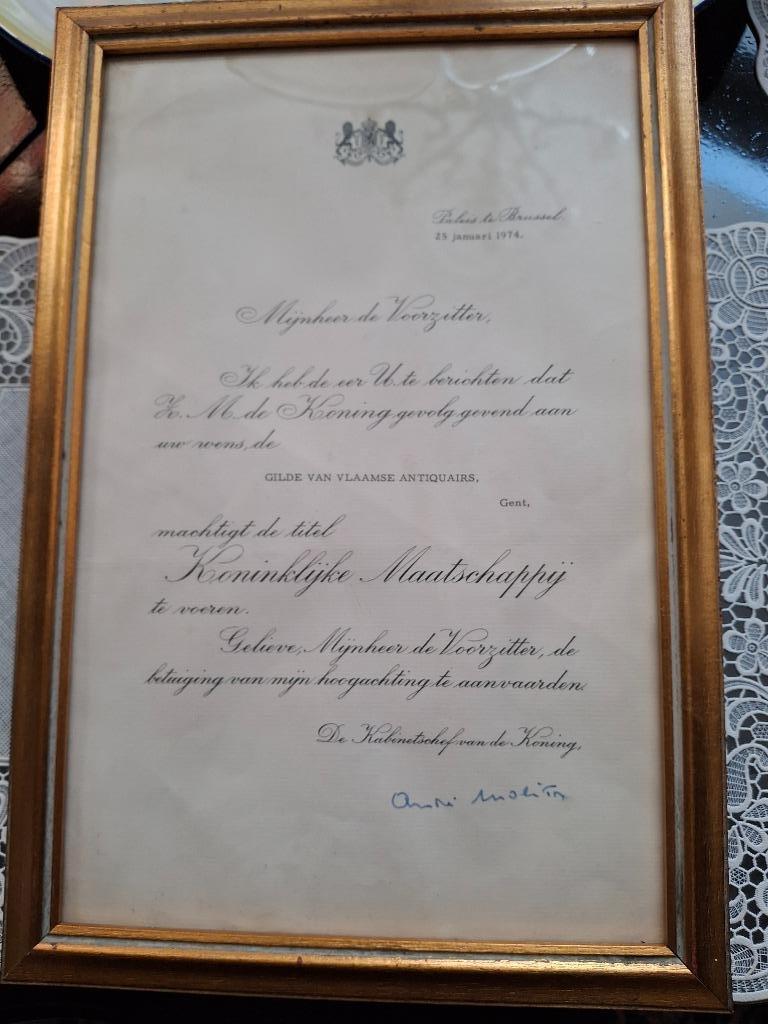 Paleis te Brussel,
25 januari 1974.
Mijnheer de Voorzitter,
Ik heb de eer U te berichten dat
Z. M. de Koning gevolg gevend aan
uw wens, de
GILDE VAN VLAAMSE ANTIQUAIRS,
Gent,
machtigt de titel
Koninklijke Maatschappij
te voeren.
Gelieve, Mijnheer de Voorzitter, de
betuiging van mijn hoogachting te aanvaarden.
De Kabinetschef van de Koning,
André Molitor